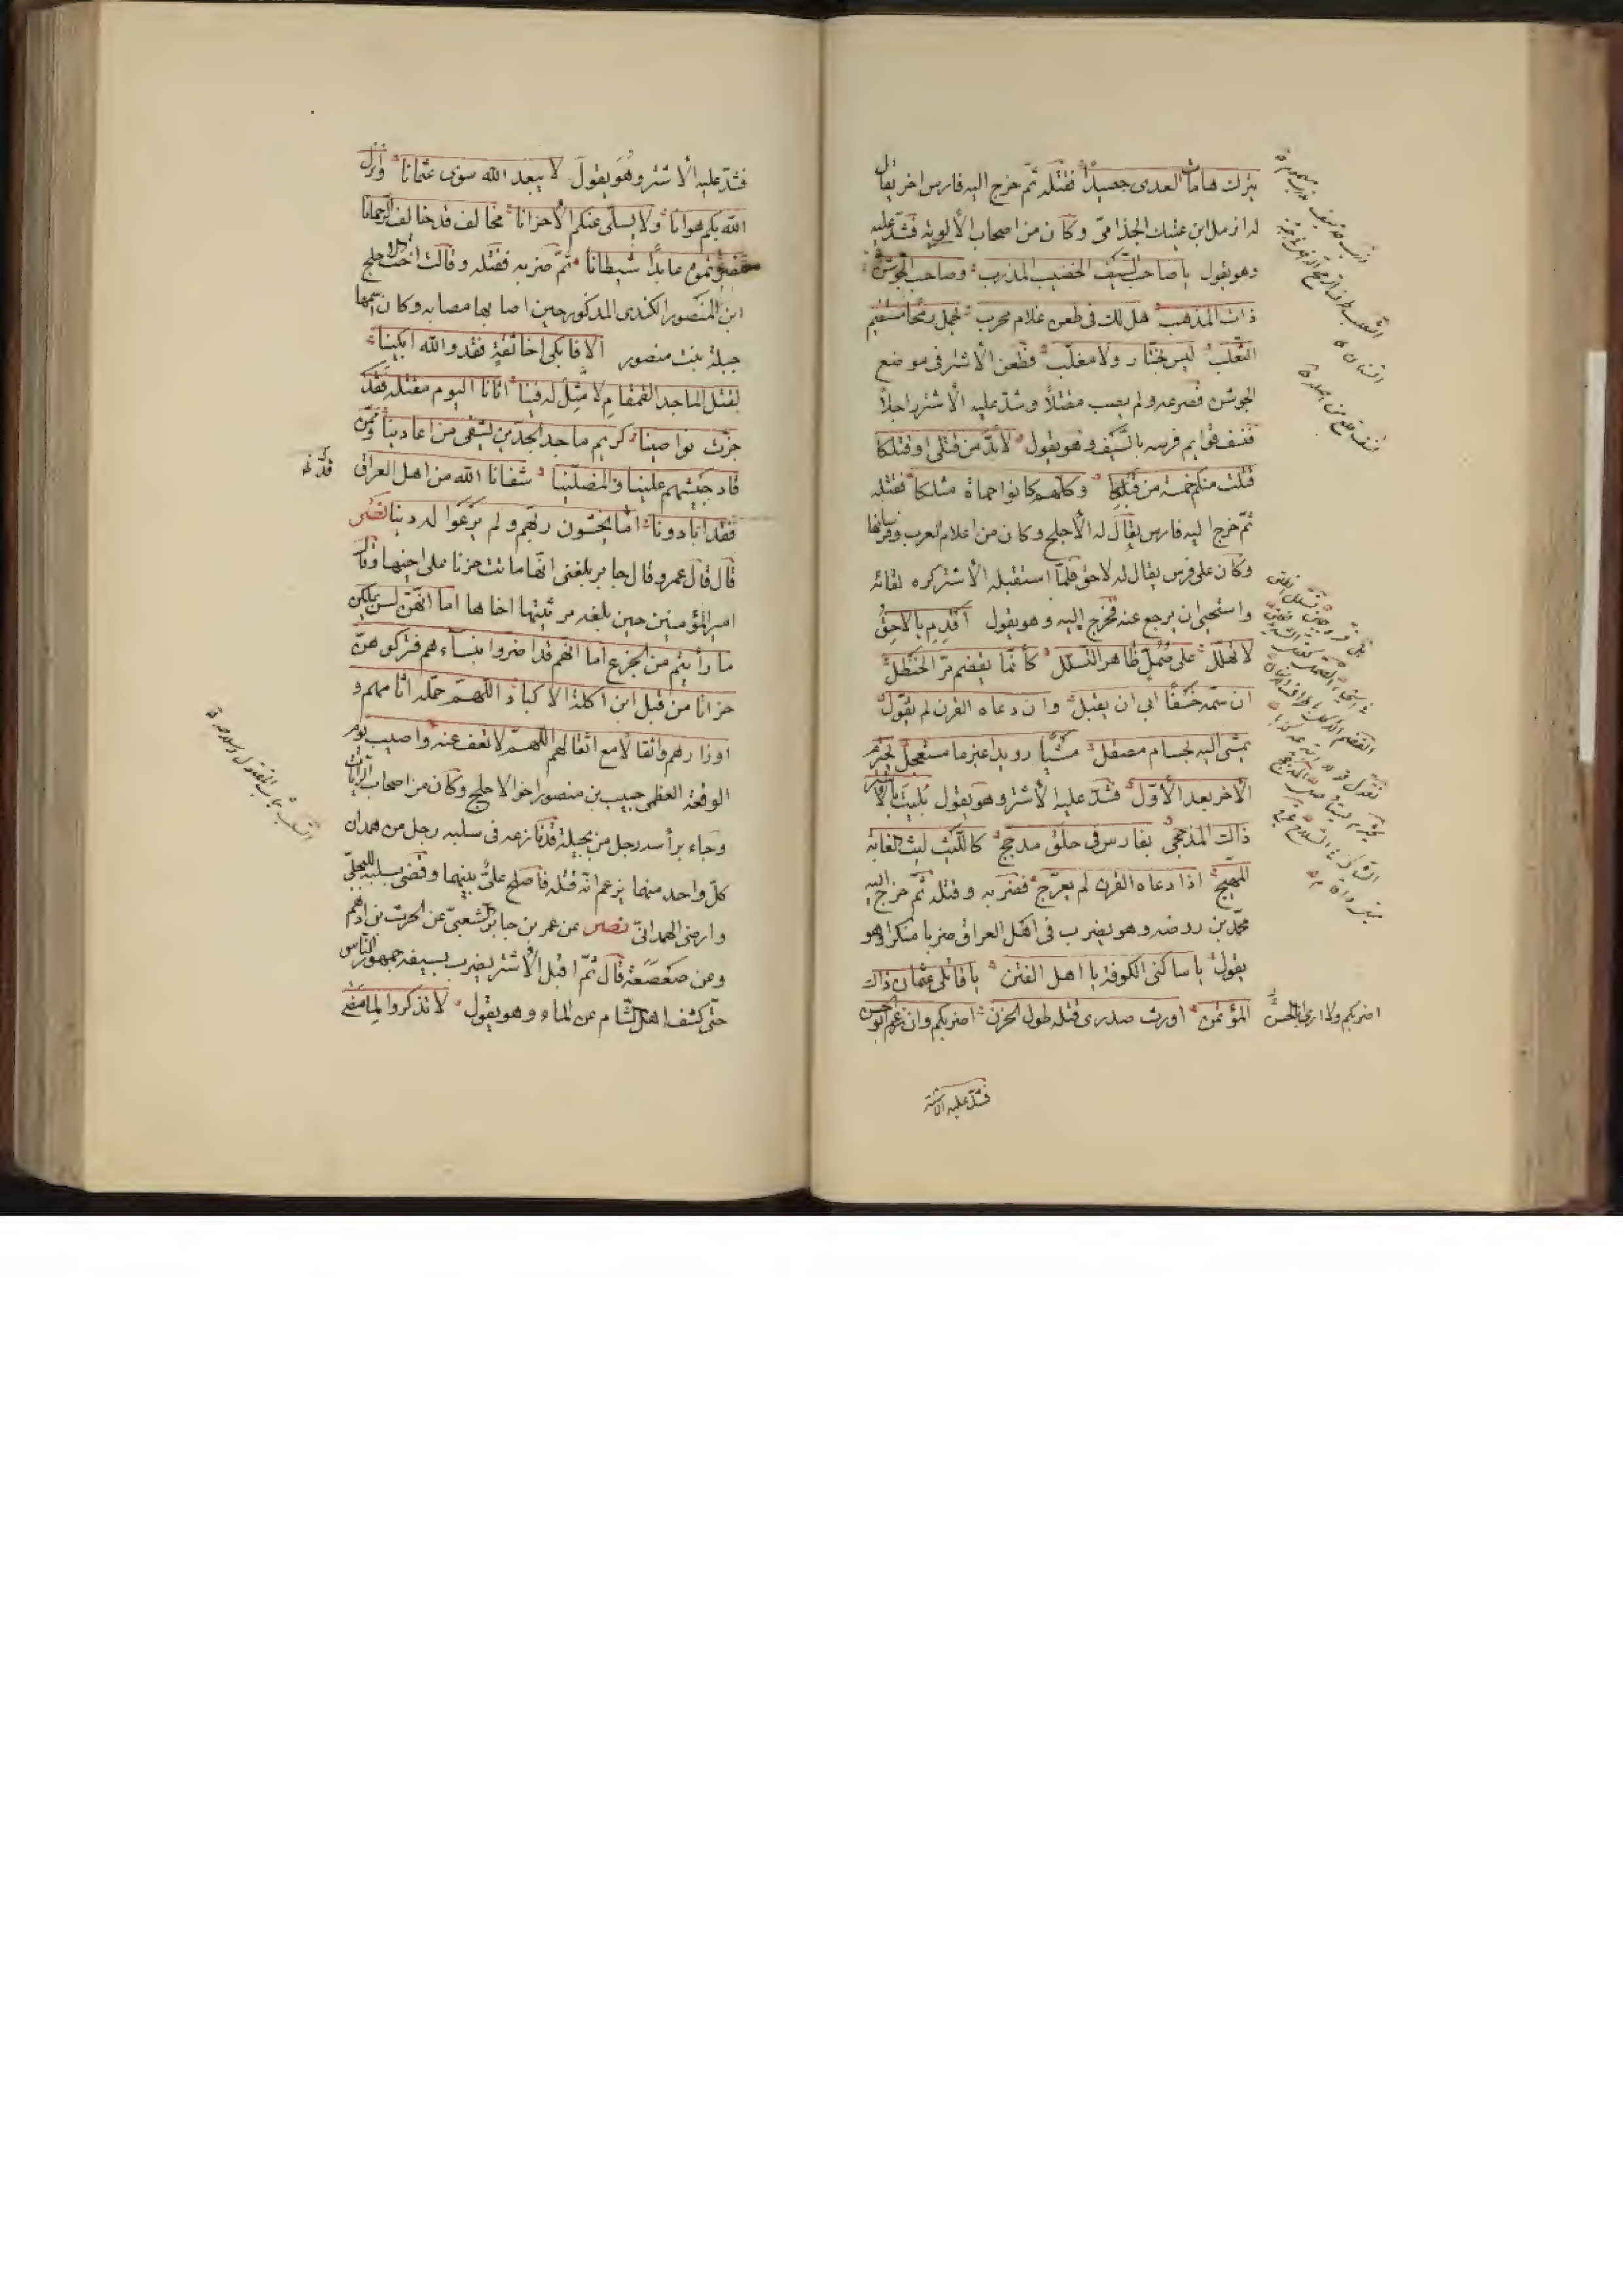 يترك هامات العدى حصيدا فقتله ثم خرج اليه فارس اخر يقال
له ازمل ابن عتيك الجذامى وكان من اصحاب الألوية فشد عليه
وهو يقول يا صاحب السيف الخضيب المذرب وصاحب الجوشن
ذات المذهب هل لك فى طعن غلام محرب يحمل رمحا مستقيم
الثعلب ليس بختار ولا مغلب فطعن الأشتر فى موضع
الجوشن فصرعه ولم يصب مقتلا وشد عليه الأشتر راجلا
فنسف قوايم فرسه بالسيف وهو يقول لا بد من قتلى او قتلكا
قتلت منكم خمسة من قبلكا وكلهم كانوا حماة مثلكا فقتله
ثم خرج اليه فارس يقال له الأجلح وكان من اعلام العرب وفرسانها
وكان على فرس يقال له لاحق فلما استقبله الأشتر كره لقائه
واستحيى ان يرجع عنه فخرج اليه وهو يقول اقدم بالاحق
لا تهلل على صمل ظاهر التسلل كأنما يقضم مر الحنظل
ان سمته خسفا ابى ان يقبل وان دعاه القرن لم يقول
يمشى اليه بحسام مصقل مشيا رويدا غير ما مستعجل يخترم
الأخر بعد الأول فشد عليه الأشتر وهو يقول بليت بالأشتر
ذاك المذحجى بفارس فى حلق مدجج كالليث ليث الغابة
المهيج اذا دعاه القرن لم يعرج فضربه وقتله ثم خرج اليه
محمد بن روضه وهو يضرب فى اهل العراق ضربا منكرا وهو
يقول يا ساكنى الكوفة يا اهل الفتن يا قاتلى عثمان ذاك
المؤتمن اورث صدرى قتله طول الحزن اضربكم وان زعم ابو حسن
اضربكم ولا ارى ابا الحسن
فشد عليه الاشتر
فشد عليه الأشتر وهو يقول لا يبعد الله سوى عثمانا وانزل
الله بكم هوانا ولا يسلى عنكم الأحزانا مخالف قد خالف الرحمانا
نصرتموه عابدا شيطانا ثم ضربه فقتله وقالت اخت اجلح
ابن المنصور الكندى المذكور حين اصابها مصابه وكان اسمها
حبلة بنت منصور الا فابكى اخا ثقة فقد والله ابكينا
لقتل الماجد القمقام لا مثل له فينا اتانا اليوم مقتله فقد
جزت نواصينا كريم ماجد الجدين يشفى من اعادينا وممن
قاد جيشهم علينا والمضلينا شفانا الله من اهل العراق
فقد ابادونا اما يخشون ربهم ولم يرعوا له دينا نصر
قال قال عمر وقال جابر بلغنى انها ماتت حزنا على اخيها وقال
امير المؤمنين حين بلغه مرثيتها اخاها اما انهن ليس بملكهن
ما رأيتم من الجزع اما انهم قد اضروا بنساءهم فتركوهن
حزانا من قبل ابن اكلة الاكباد اللهم حمله اثامهم و
اوزارهم واثقالا مع اثقالهم اللهم لا تعف عنه واصيب يوم
الوقعة العظمى حبيب بن منصور اخو الاجلح وكان من اصحاب الرايات
وجاء برأسه رجل من بجيلة قد نازعه فى سلبه رجل من همدان
كل واحد منهما يزعم انه قتله فأصلح على بينهما وقضى بسلبه للبجلى
وارضى الهمدانى نصر عن عمر بن جابر الشعبى عن الحرث بن ادهم
وعن صعصعة قال ثم اقبل الأشتر يضرب بسيفه جمهور الناس
حتى كشف اهل الشام عن الماء وهو يقول لا تذكروا لما مضى